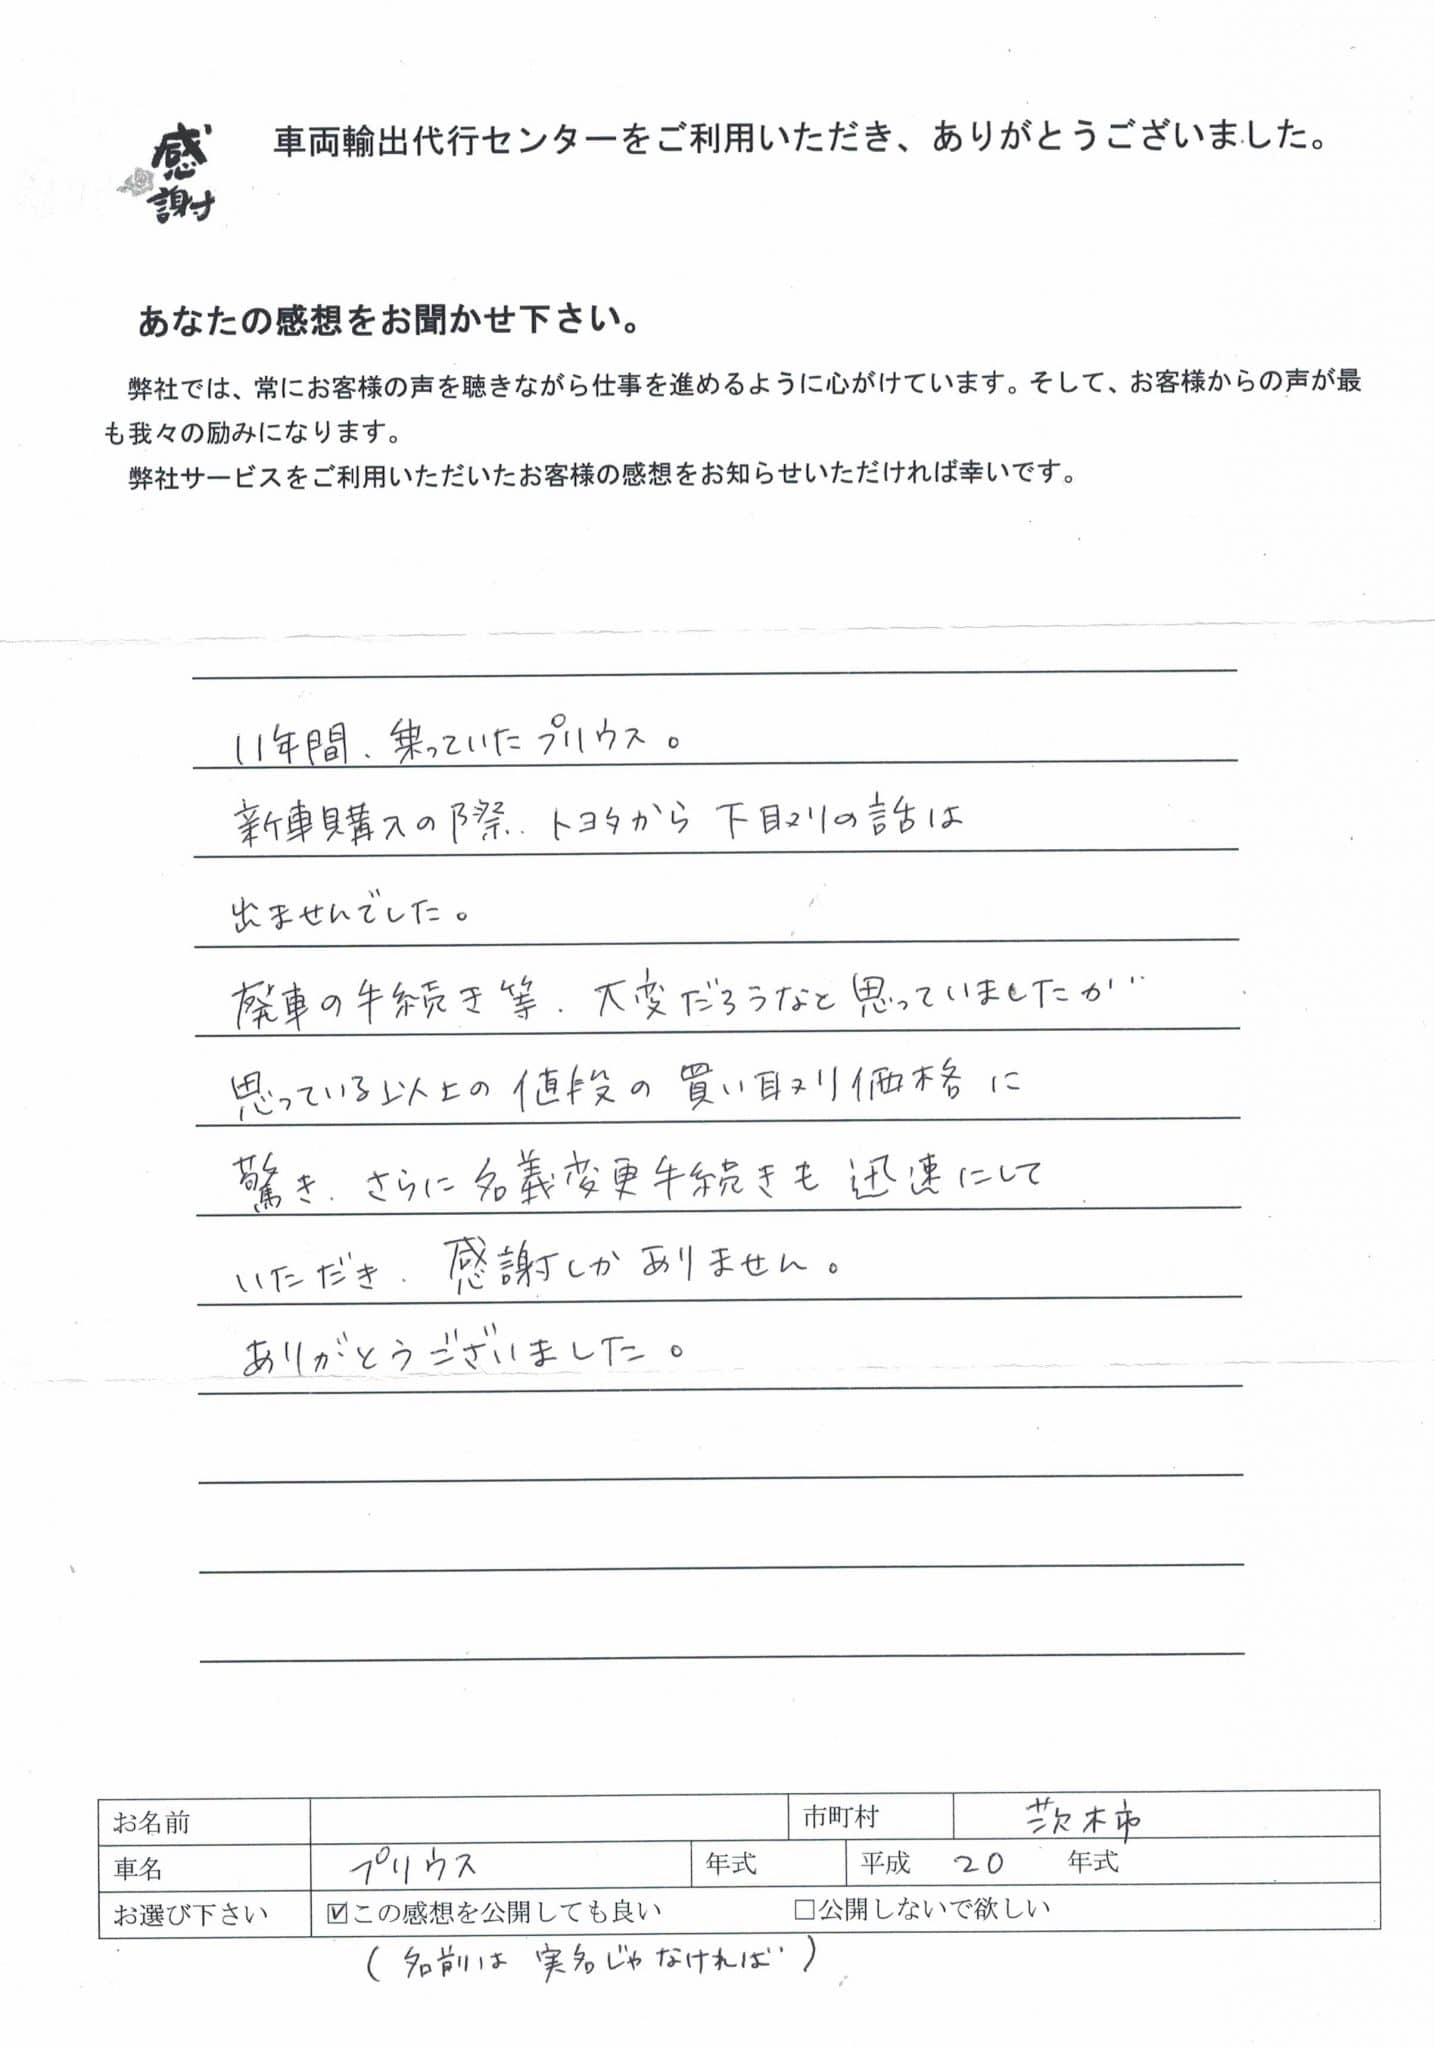 感謝
車両輸出代行センターをご利用いただき、ありがとうございました。
あなたの感想をお聞かせ下さい。
弊社では、常にお客様の声を聴きながら仕事を進めるように心がけています。そして、お客様からの声が最
も我々の励みになります。
弊社サービスをご利用いただいたお客様の感想をお知らせいただければ幸いです。
11年間、乗っていたプリウス。
新車購入の際、トヨタから下取りの話は
出ませんでした。
廃車の手続き等、大変だろうなと思っていましたが
思っている以上の値段の買い取り価格に
驚き、さらに名義変更手続きも迅速にして
いただき、感謝しかありません。
ありがとうございました。
お名前 市町村 茨木市
車名 プリウス 年式 平成 20 年式
お選び下さい ☑この感想を公開しても良い □公開しないで欲しい
(名前は実名じゃなければ)